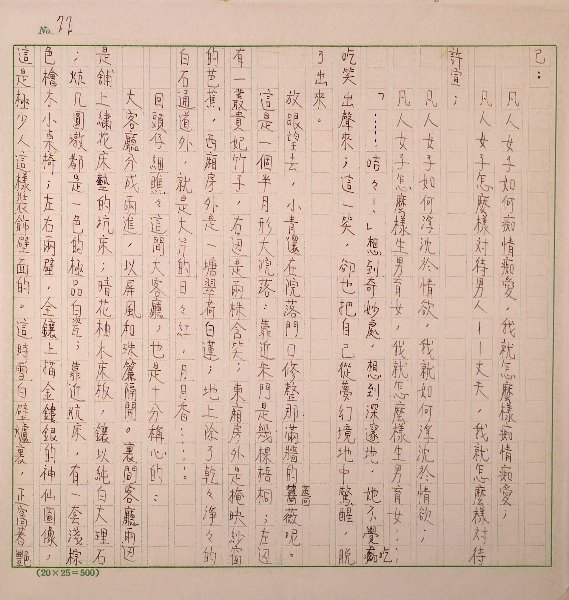 No. 77
己：
凡人女子如何痴情痴愛，我就怎麼樣痴情痴愛；
凡人女子怎麼樣对待男人——丈夫，我就怎麼樣对待
許宣；
凡人女子如何浮沈於情欲，我就如何浮沈於情欲；
凡人女子怎麼樣生男育女，我就怎麼樣生男育女…；
「……唔々！」想到奇妙處，想到深邃地，她不覺痴吃
吃笑出聲來；這一笑，卻也把自己從夢幻境地中驚醒，脫
了出來。
放眼望去，小青還在院落門口修整那滿牆的薔薇呢。
這是一個半月形大院落，靠近來門是幾棵梧桐；左辺
有一叢貴妃竹子，右辺是兩株含笑；東廂房外是掩映紗窗
的芭蕉，西廂房外是一塘翠荷白蓮；地上除了乾々淨々的
白石通道外，就是大片的日々紅，月月香……。
回頭仔細瞧々這間大客廳，也是十分稱心的：
大客廳分成兩進，以屏風和珠簾隔開。裏間客廳兩辺
是舖上繡花床墊的炕床；暗花柚木床板，鑲以純白大理石
；炕几圓墩都是一色的極品白瓷；靠近炕床，有一套淺棕
色檜木小桌椅；左右兩壁，全鑲上描金鏤銀的神仙圖像，
這是極少人這樣裝飾壁面的。這時雪白壁爐裏，正窩著艷
(20×25=500)